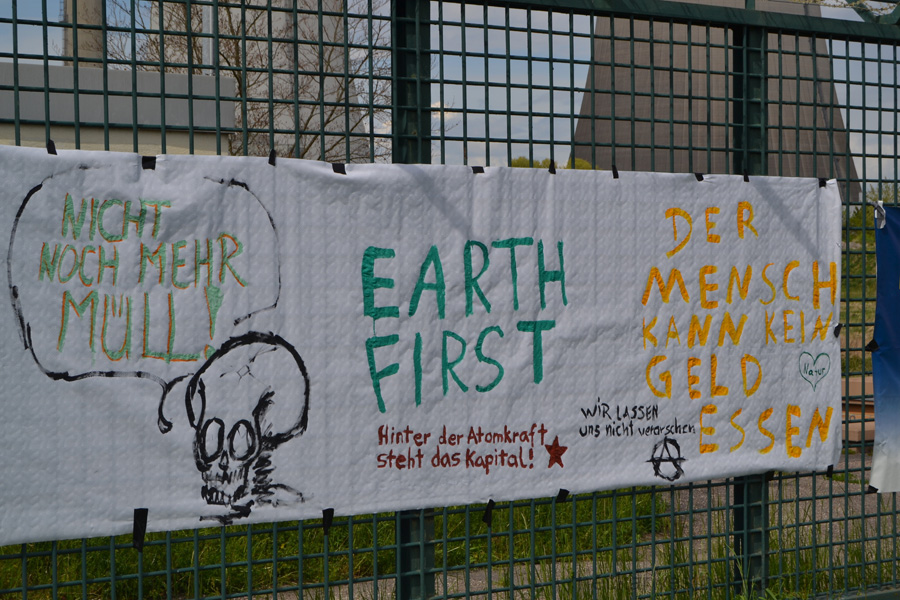 NICHT
NOCH MEHR
MÜLL!
EARTH
FIRST
Hinter der Atomkraft
steht das Kapital!
WIR LASSEN
uns nicht verarschen
DER
MENSCH
KANN KEIN
GELD
ESSEN
Natur